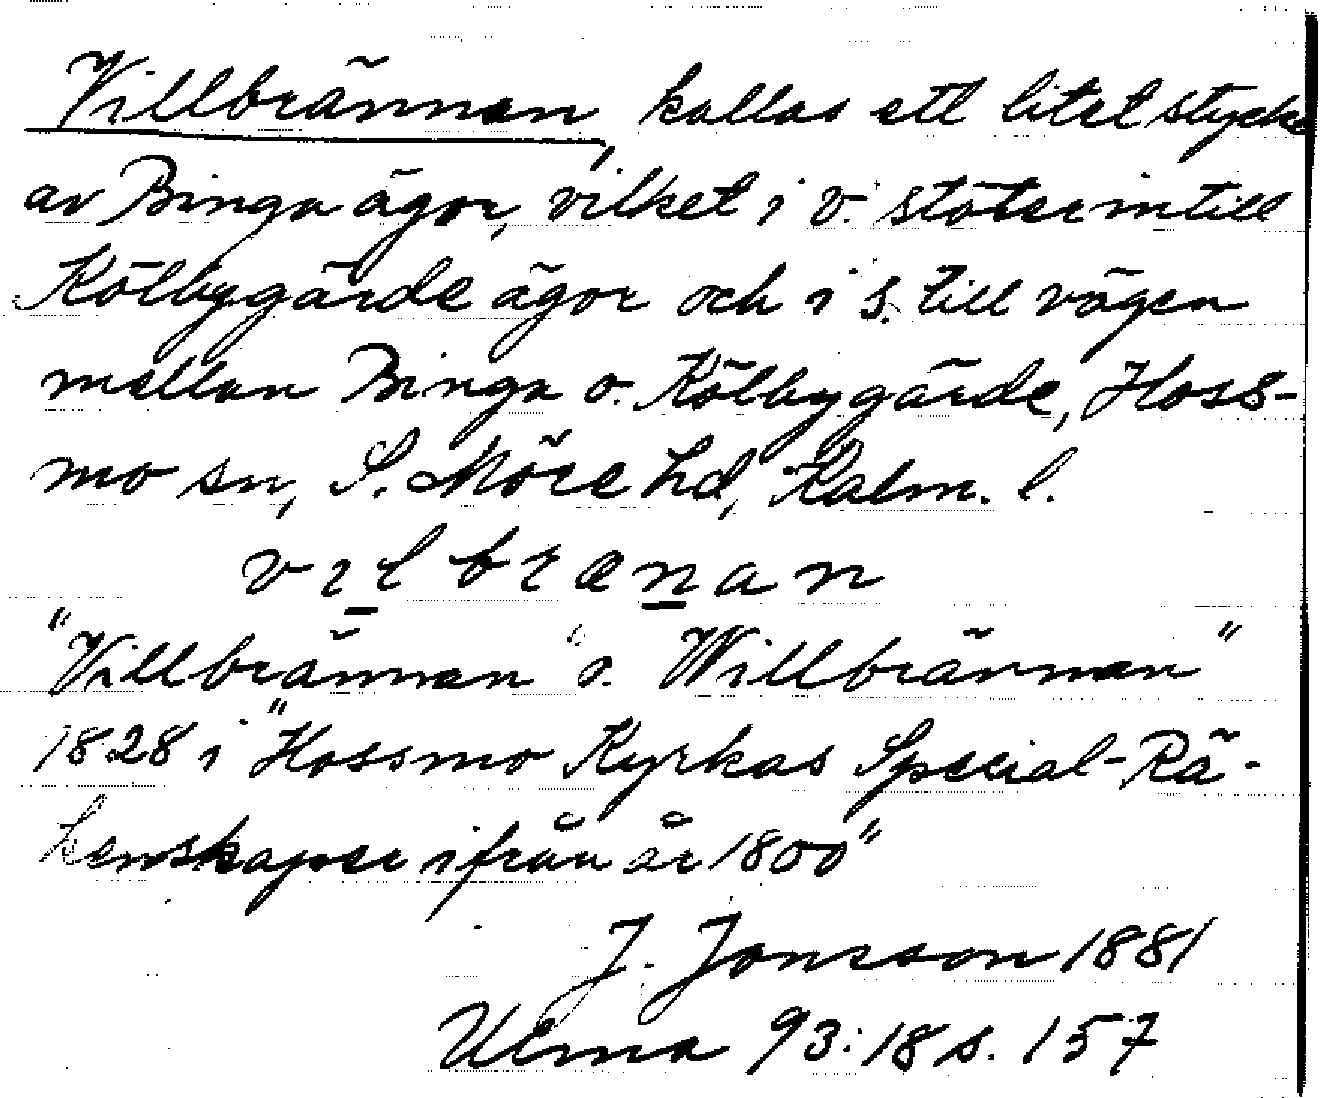 Villbrännan, kallas ett litet stycke
av Binga ägor, vilket i v. stöter intill
Kölbygärde ägor och i s. till vägen
mellan Binga o. Kölbygärde, Hoss-
mo sn, S. Möre hd, Kalm. l.
vɪl̲bræn̲an
"Villbrännan" o. "Willbrännan"
1828 i "Hossmo Kyrkas Special-Rä-
kenskaper ifrån år 1800"
J. Jonsson 1881
Ulma 93:18 s. 157